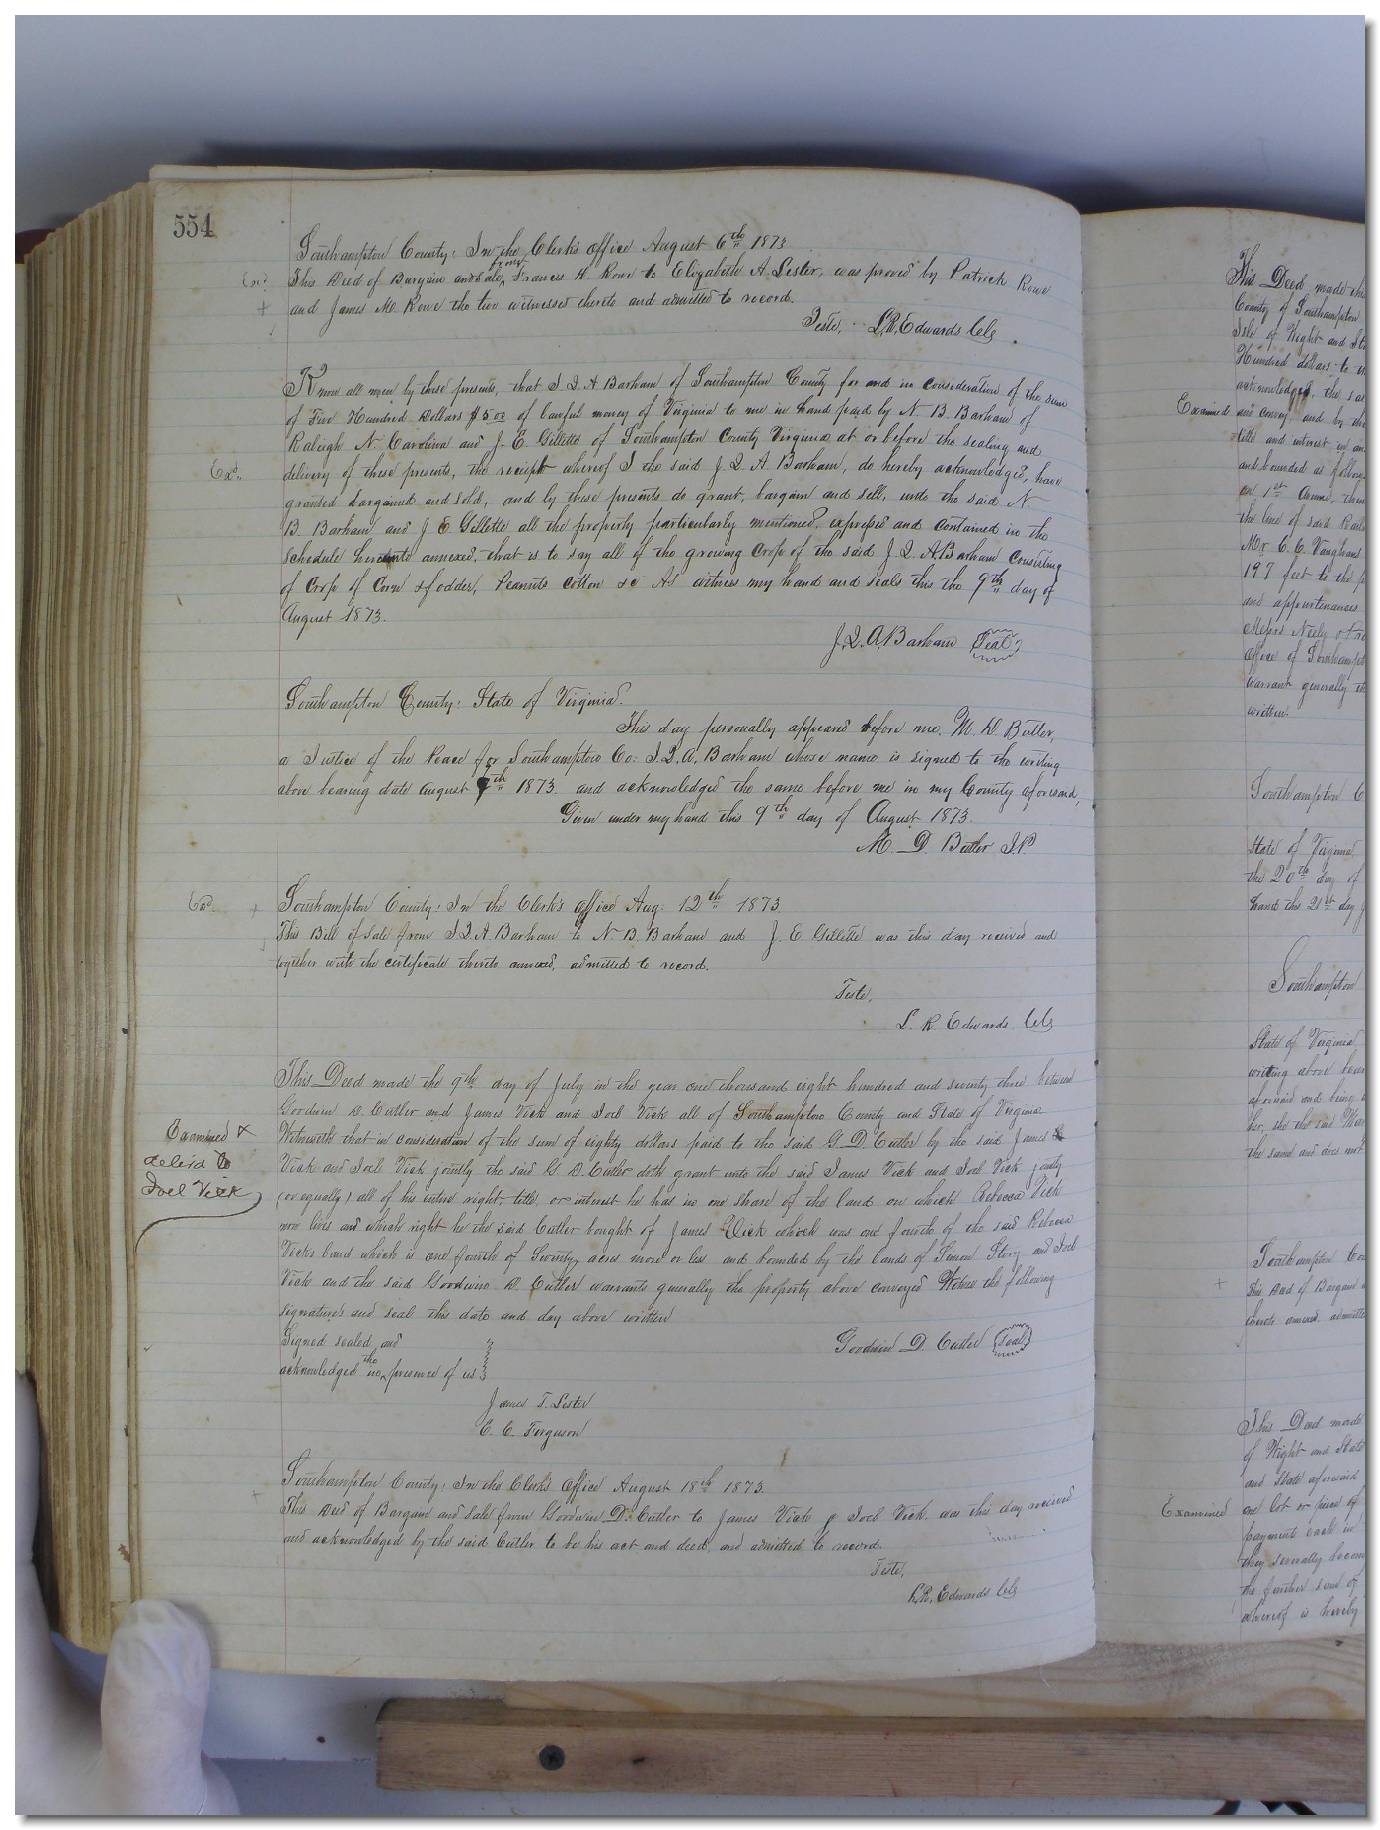 554
Southampton County: In the Clerk's Office August 6th 1873
Exd. This Deed of Bargain and Sale from Frances H. Rowe to Elizabeth A. Lester, was proved by Patrick Rowe
and James M. Rowe the two witnesses thereto and admitted to record.
Teste, L.R. Edwards Clk
Know all men by these presents, that J. Q. A. Barham of Southampton County for and in consideration of the sum
of Five Hundred Dollars $500 of lawful money of Virginia to me in hand paid by N. B. Barham of
Raleigh N. Carolina and J. E. Gillette of Southampton County Virginia at or before the sealing and
Exd. delivery of these presents, the receipt whereof I the said J. Q. A. Barham, do hereby acknowledged, have
granted bargained and sold, and by these presents do grant, bargain and sell, unto the said N
B. Barham and J E Gillette all the property particularly mentioned, expressed and contained in the
schedule hereunto annexed, that is to say all of the growing Crop of the said J. Q. A. Barham Consisting
of Crop of Corn & fodder, Peanuts Cotton &c As witness my hand and seals this the 9th day of
August 1873.
J. Q. A. Barham Seal
Southampton County: State of Virginia.
This day personally appeared before me, M. D. Butler,
a Justice of the Peace for Southampton Co: J. Q. A. Barham whose name is signed to the writing
above bearing date August 9th 1873 and acknowledged the same before me in my County aforesaid,
Given under my hand this 9th day of August 1873.
M. D. Butler J.P.
Exd. Southampton County: In the Clerk's Office Aug: 12th 1873
This Bill of Sale from J. Q. A. Barham to N. B. Barham and J. E Gillette was this day received and
together with the certificate thereto annexed, admitted to record.
Teste,
L. R. Edwards Clk
This Deed made the 9th day of July in the year one thousand eight hundred and seventy three between
Goodwin D. Cutler and James Vick and Joel Vick all of Southampton County and State of Virginia
Examined & Witnesseth that in consideration of the sum of eighty dollars paid to the said G. D. Cutler by the said James
delivd to Vick and Joel Vick jointly the said G. D. Cutler doth grant unto the said James Vick and Joel Vick jointly
Joel Vick (or equally) all of his entire right, title, or interest he has in one share of the land on which Rebecca Vick
now lives and which right he the said Cutler bought of James Vick which was one fourth of the said Rebecca
Vicks land which is one fourth of Seventy acres more or less and bounded by the lands of Simon Story and Joel
Vick and the said Goodwin D. Cutler warrants generally the property above conveyed Witness the following
signatures and seal this date and day above written
Signed sealed and
acknowledged in the presence of us
Goodwin D. Cutler Seal
James T. Lester
E. C. Ferguson
Southampton County: In the Clerk's Office August 18th 1873.
This Deed of Bargain and Sale from Goodwin D. Cutler to James Vick & Joel Vick was this day received
and acknowledged by the said Cutler to be his act and deed, and admitted to record.
Teste,
L.R. Edwards Clk
This Deed made this
County of Southampton
Isle of Wight and St
Hundred dollars to
acknowledged, the sa
Examined and convey, and by th
title and interest in an
and bounded as follows
on 1st Avenue, then
the line of said Rail
Mr C. C. Vaughans
197 feet to the p
and appurtenances
Messrs Neely
office of Southampt
warrant generally th
written.
Southampton C
State of Virginia
the 20th day of
hand this 21st day
Southampton
State of Virginia
writing above bear
aforesaid and being
her, she the said
the same and does not
Southampton Co
This Deed of Bargain
thereto annexed admitte
This Deed made
of Wight and State
and State aforesaid
Examined one lot or piece of
payments each in
they severally becom
the further sum of
whereof is hereby